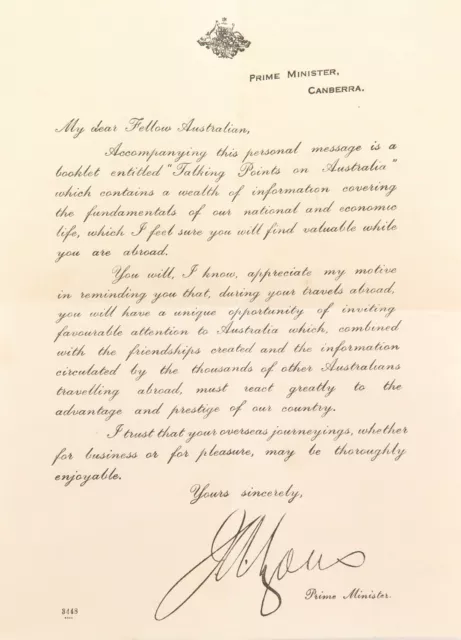 PRIME MINISTER,
CANBERRA.
My dear Fellow Australian,
Accompanying this personal message is a
booklet entitled "Talking Points on Australia"
which contains a wealth of information covering
the fundamentals of our national and economic
life, which I feel sure you will find valuable while
you are abroad.
You will, I know, appreciate my motive
in reminding you that, during your travels abroad,
you will have a unique opportunity of inviting
favourable attention to Australia which, combined
with the friendships created and the information
circulated by the thousands of other Australians
travelling abroad, must react greatly to the
advantage and prestige of our country.
I trust that your overseas journeyings, whether
for business or for pleasure, may be thoroughly
enjoyable.
Yours sincerely,
J A Lyons
Prime Minister.
3448